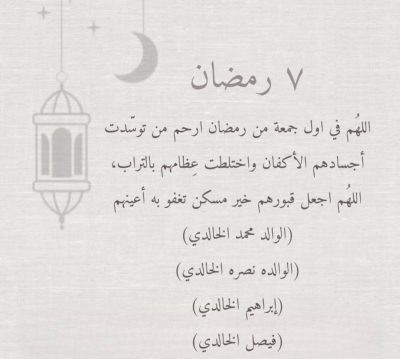 ٧ رمضان
اللهُم في اول جمعة من رمضان ارحم من توسّدت
أجسادهم الأكفان واختلطت عِظامهم بالتراب،
اللهُم اجعل قبورهم خير مسكن تغفو به أعينهم
(الوالد محمد الخالدي)
(الوالده نصره الخالدي)
(إبراهيم الخالدي)
(فيصل الخالدي)